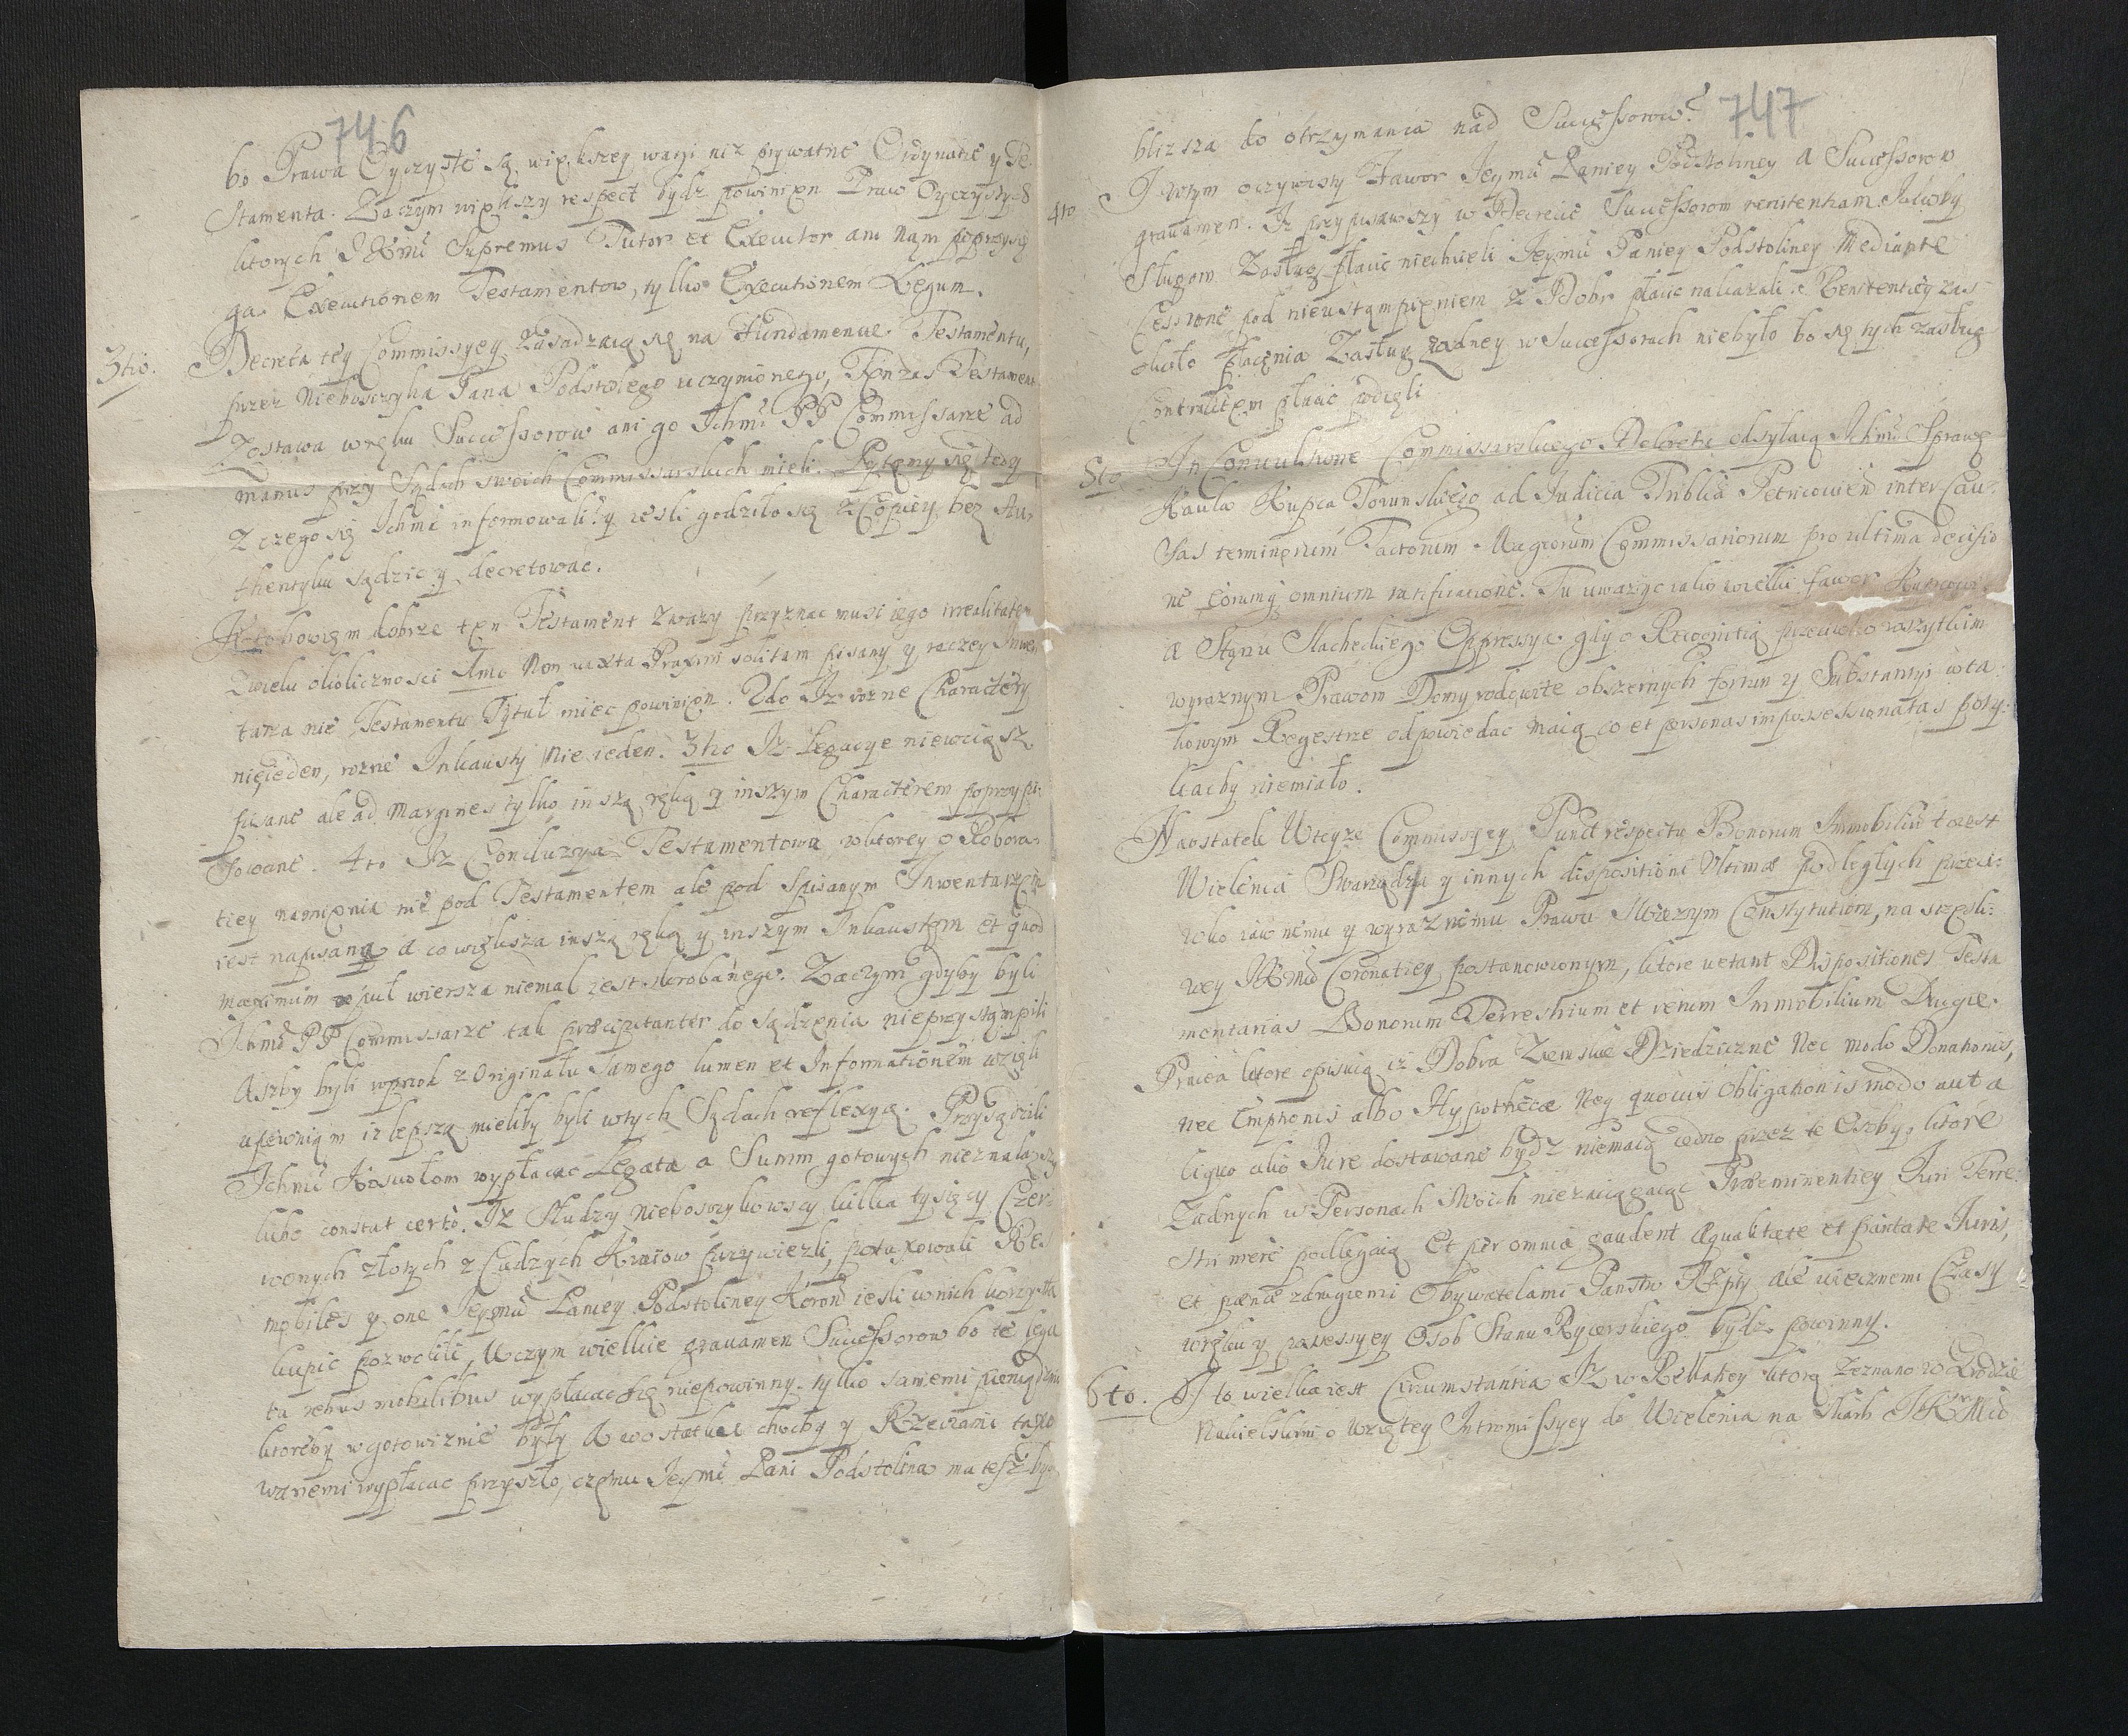 746
bo Prawa Oyczyste są większey wagi niz prywatne Ordynatie y Te
stamenta. Zaczym większy respect bydz powinien Praw Oyczystych
ktorych JKrMć Supremus Tutor et Executor ani nam poprzysią
ga Executionem Testamentow, tylko Executionem Legum.
3tio. Decreta tey Commissyey zasadzaią się na Fundamencie Testamentu,
przez Nieboszczyka Pana Podstolego uczynionego, Ten zas Testament
Zostawa w ręku Successorow ani go Ichmć PP Commissarze ad
manus przy Sądach swoich Commissarskich mieli. Pytamy się tedy
Z czego się Ichmć informowali? y iesli godziło się z Copiey bez Au-
thentyku sądzic y decretowac.
Kto bowiem dobrze ten Testament zwazy przyznac musi iego irrealitatem
Zwielu okolicznosci 1mo Non iuxta Praxim solitam pisany y raczey Inwen
tarza nie Testamentu Tytuł miec powinien. 2do Iz rozne Charactery
nieieden, rozne Inkausty nie ieden. 3tio Iz Legacye niewciąsz
pisane ale ad Margines tylko inszą ręką y inszym Characterem poprzypi-
sowane. 4to Iz Concluzya Testamentowa w ktorey o Robora-
tiey namienia nie pod Testamentem ale pod spisanym Inwentarzem
iest napisana a co większa inszą ręką y inszym Inkaustem et quod
maximum puł wiersza niemal iest skrobanego. Zaczym gdyby byli
Ichmć PP Commissarze tak praecipitanter do Sądzenia nieprzystąmpili
Aszby byli wprzod z Originału samego lumen et Informationem wzieli
upewniam iz lepszą mieliby byli w tych Sądach reflexyą. Przysądzili
Ichmć Kosciołom wypłacac Legata a Summ gotowych nieznalazszy
lubo constat certo. Iz Słudzy Nieboszczykowscy kilka tysięcy Czer-
wonych złotych z Cudzych Kraiow przywiezli, potaxowali Res
mobiles y one Jeymć Paniey Podstoliney Koron iesli w nich
kupic pozwolili, W czym wielkie gravamen Successorow bo te lega
ta rebus mobilibus wypłacac się niepowinny tylko samemi pieniądzmi
ktoreby w gotowiznie były A w ostatku chocby y Rzeczami taxo
wanemi wypłacac przyszło, czemu Jeymć Pani Podstolina ma tesz bydz
747
blizsza do otrzymania nad Successorow?
4to I w tym oczywisty Fawor Jeymć Paniey Podstoliney a Successorow
gravamen. Iz przypisawszy w Decrecie Successorom renitentiam Jakoby
Sługom Zasług płacic niechcieli Jeymć Paniey Podstoliney Mediante
Cessione pod nieustąmpieniem z Dobr płacic nakazali. Renitentiey zas
około płacenia Zasług zadney w Successorach niebyło bo się tych zasług
Contractem płacic podieli
5to In Convulsione Commissarskiego Decretu odsyłaią Ichmć Sprawę
Kaula Kupca Torunskiego ad Judicia Triblia Petricovien inter Cau-
sas terminorum Factorum Magcorum Commissariorum pro ultima decisio
ne eorumq omnium ratificatione. Tu uwazyc iako wielki fawor
a Stanu Slacheckiego Oppressya. gdy o Recognitią przeciwko wszytkim
wyraznym Prawom Domy rodowite obszernych fortun y Substantyi w ta-
kowym Regestrze odpowiedac maią co et personas impossessionatas poty-
kacby niemiało.
Naostatek W teyze Commissyey Punct respectu Bonorum Immobiliu to iest
Wielenia Swarzędza y innych dispositioni Ultimae podległych przeci-
wko iawnemu y wyraznemu Prawu Swiezym Constytutiom, na sczesli-
wey JKrMći Coronatiey postanowionym, ktore vetant Dispositiones Testa
mentarias Bonorum Terrestrium et rerum Immobilium Drugie
Prawa ktore opisuią iz Dobra Ziemskie Dziedziczne Nec modo Donationis,
nec Emptionis albo Hypothecae Neq quovis obligationis modo aut a
liquo alio Iure dostawane bydz niemaią iedno przez te Osoby, ktore
Zadnych w Personach swoich niezaciągaiąc Praeminentiey Iuri Terre-
stri mere podlegaią Et per omnia gaudent aequalitate et paritate Iuris,
et paena zdrugiemi Obywatelami Panstw Rzpty ale wiecznemi Czasy
w ręku y possessyey Osob Stanu Rycerskiego bydz powinny.
6to. I to wielka iest Circumstantia Iz w Rellatiey ktorą zeznano w Grodzie
Nakielskim o wziętey Intromissyey do Wielenia na Skarb JKrMći